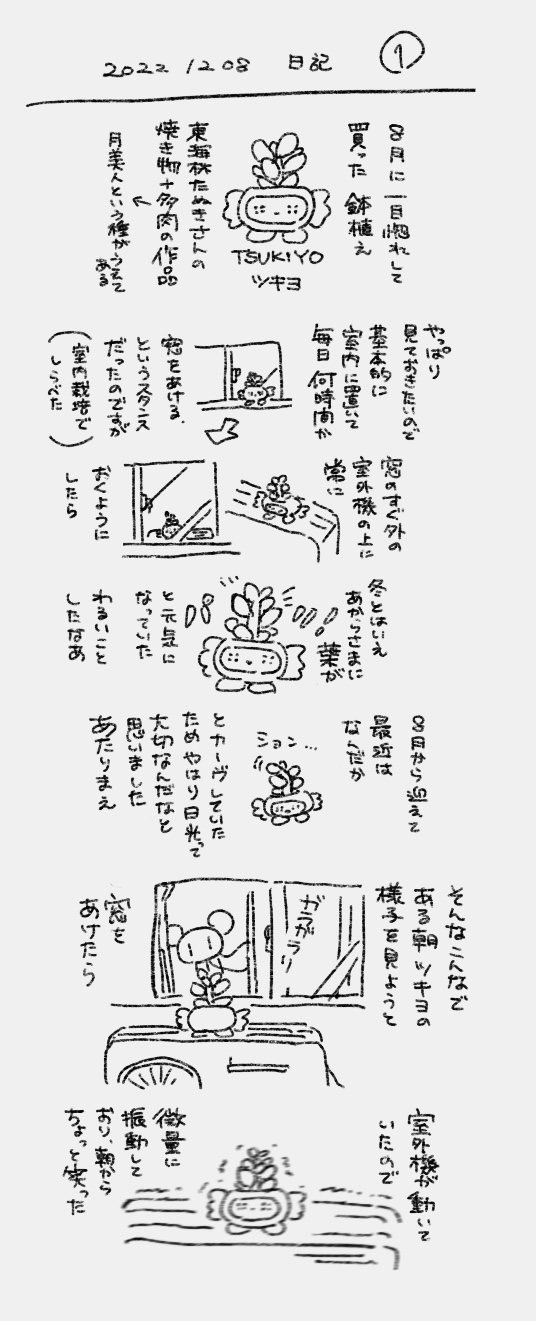 2022 12 08 日記 ①
8月に一目惚れして
買った 鉢植え
TSUKIYO
ツキヨ
東海林たぬきさんの
焼き物+多肉の作品
月美人という種がうえて
ある
やっぱり
見ておきたいので
基本的に
室内に置いて
毎日 何時間か
窓をあける、
というスタンス
だったのですが
(室内栽培で
しらべた)
窓のすぐ外の
室外機の上に
常に
おくように
したら
冬とはいえ
あからさまに
葉が
と元気に
なっていた
わるいこと
したなあ
8月から迎えて
最近は
なんだか
ション…
とカーヴしていた
ためやはり日光って
大切なんだなと
思いました
あたりまえ
そんなこんなで
ある朝ツキヨの
様子を見ようと
ガラガラッ
窓を
あけたら
室外機が動いて
いたので
微量に
振動して
おり、朝から
ちょっと笑った